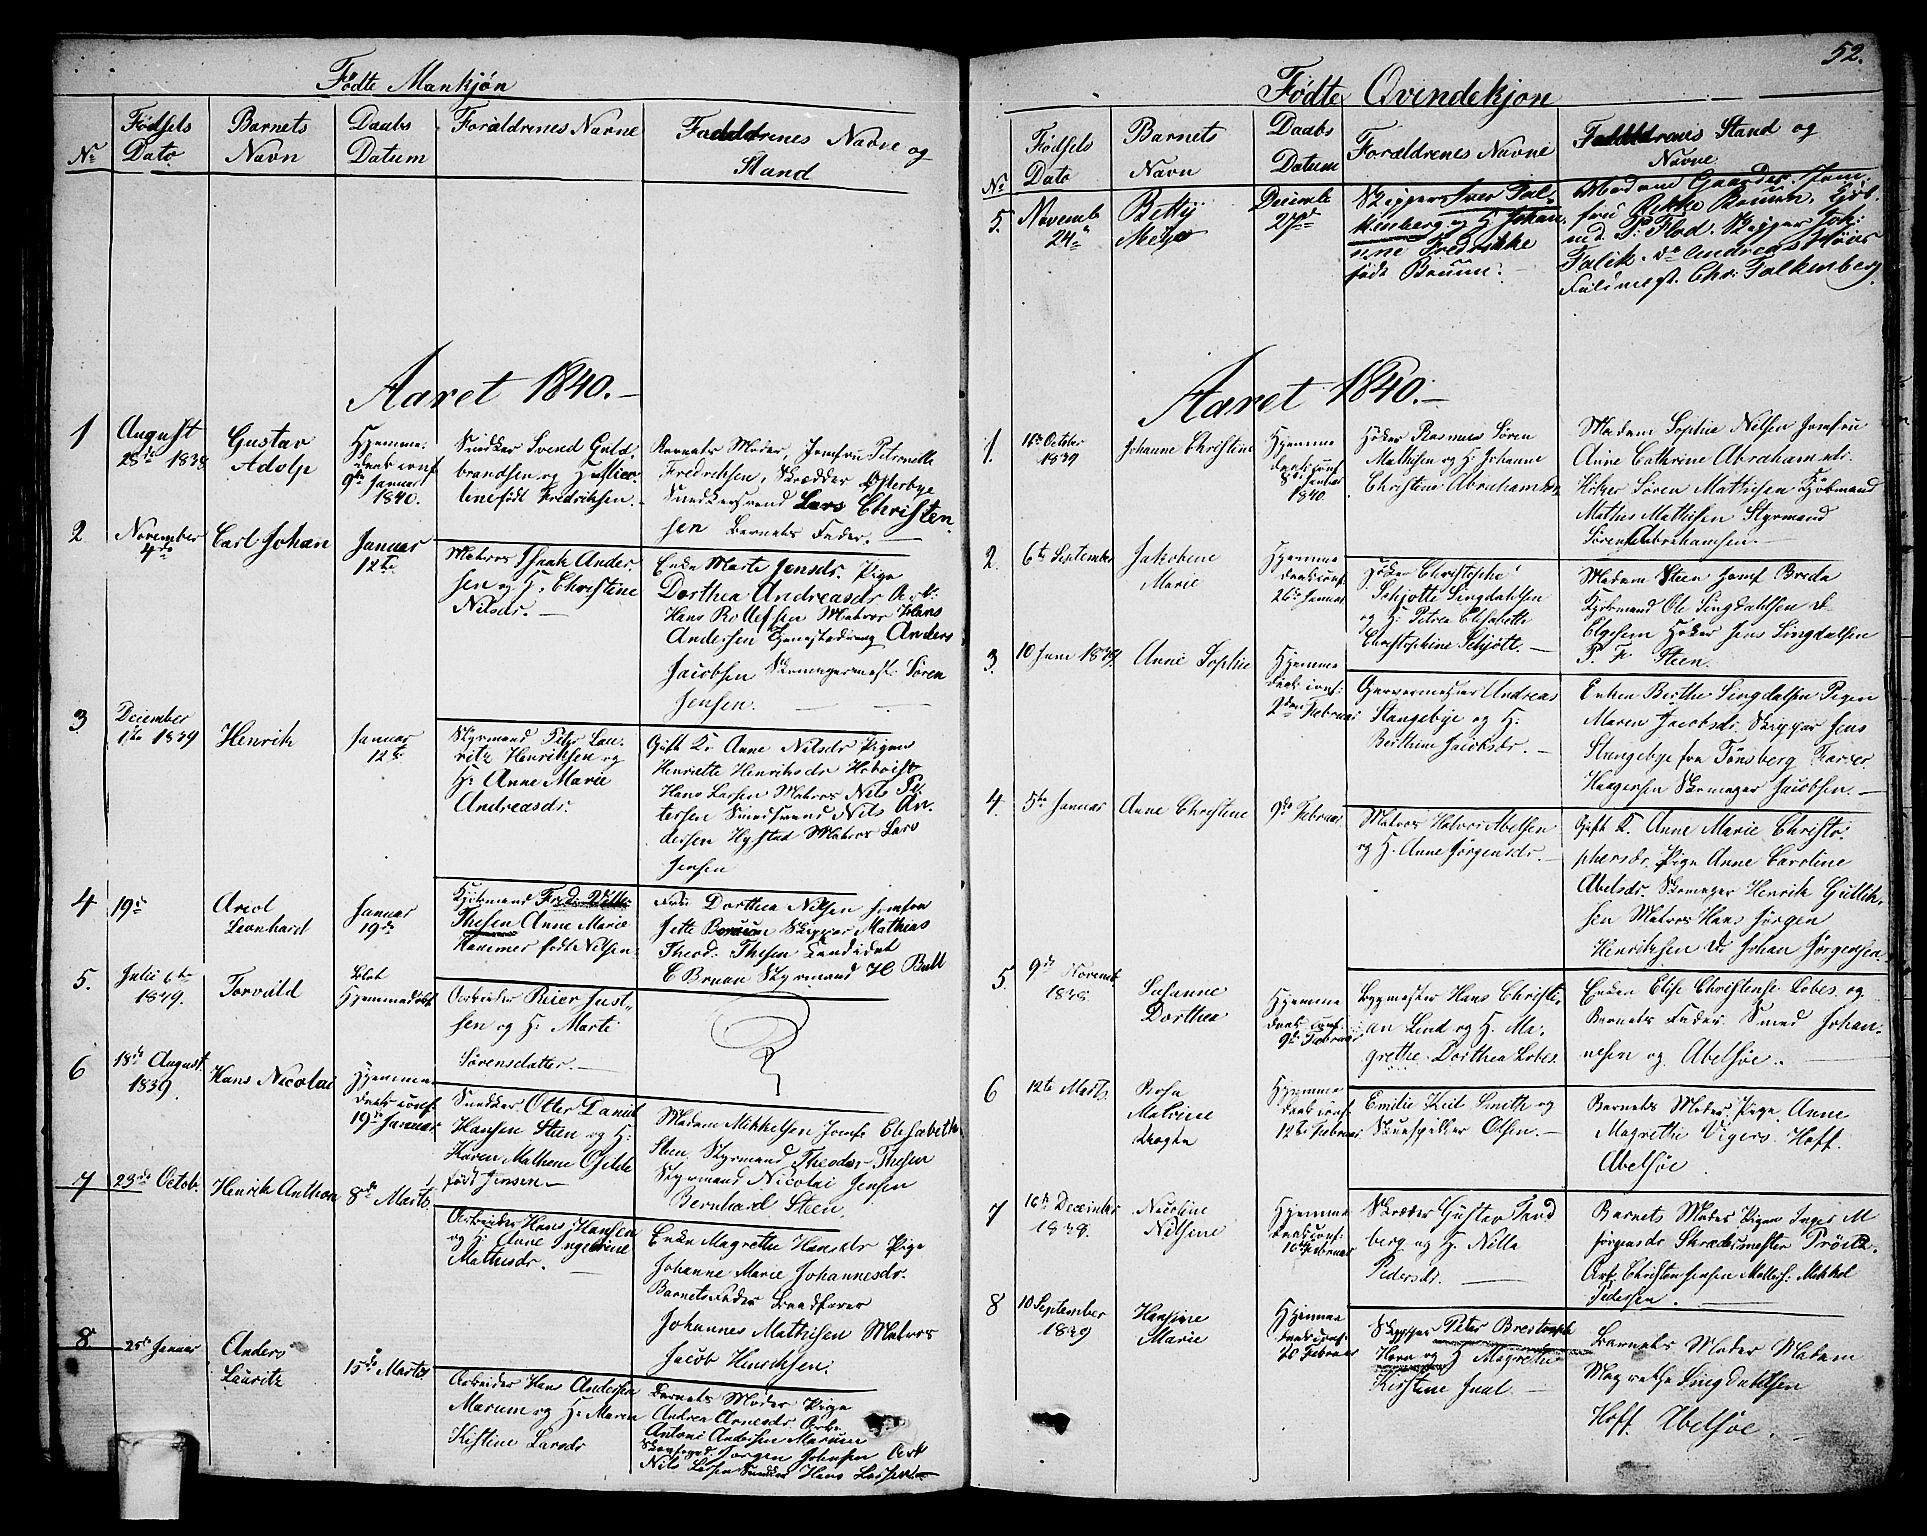 52.
Födte Mankjön
No
Födsels Dato
Barnets Navn
Daabs Datum
Forældrenes Navne
Fadderenes Navne og Stand
Aaret 1840.
1
August 28de 1838
Gustav Adolp
Hjemmedaab conf. 9de Januar 1840.
Snedker Svend Guldbrandsen og H:
født Fredriksen.
Barnets Moder, Jomfru Petronelle
Fredriksen, Skrædder Østerbye
Snedkersvend Lars Christensen
Barnets Fader.
2
November 4de
Carl Johan
Januar 12te
Matros Isaak Andersen
og H: Christine
Nilsdr.
Enke Marte Jensdr. Pige
Dorthea Andreasdr Arb:
Hans Rollefsen Matros Hans
Andersen Tjenestedreng Anders
Jacobsen Skomagermest: Sören
Jensen.
3
December 1te 1839
Henrik
Januar 12te
Styrmand Peter Lauritz
Henriksen og
H: Anne Marie
Andreasdr.
Gift K: Anne Nilsdr Pigen
Henriette Henriksdr
Hans Larsen Matros Nils Petersen
Smedsvend Nils Andersen
Hystad Matros Lars
Jensen
4
19de
Ared Leonhard
Januar 19de
Kjöbmand Fred:
Thesen Anne Marie
født Nilsen
Fru Dorthea Nilsen Jomfru
Jette Bruun Skipper Mathias
Theod: Thesen Candidat
C Bruun Styrmand H. Bull
5.
Julii 6te 1839.
Torvald
blot Hjemmedöbt
Arbeider Reier Justsen
og H: Marte
Sørensdatter.
6
18de August 1839.
Hans Nicolai
Hjemmedaab conf. 19de Januar
Snedker Otter Daniel
Hansen Steen og H:
Karen Mathene Gilde
født Jensen
Madam Mikkelsen Jomfr Elisabeth
Steen, Styrmand Theodor Thesen
Styrmand Nicolai Jensen
Bernhard Steen
7
23de Octob.
Henrik Anthon
8de Marts
Arbeider Hans Hansen
og H: Anne Ingebrine
Mathisdr.
Enke Magrethe Hansdr Pige
Johanne Marie Johannesdr.
Barnets Fader Landhever
Johannes Mathisen Matros
Jacob Henriksen.
8
25de Januar
Anders Lauritz
15de Marts
Arbeider Hans Andersen
Marum og H: Maren
Kistine Larsdr
Barnets Moder Pige
Andrea Arnesdr Arb.
Antoni Andersen Marum
Jørgen Johnsen Arb
Nils Larsen Snedker Hans Larsen
Födte Qvindekjøn
No
Födsels Dato
Barnets Navn
Daabs Datum
Forældrenes Navne
Fadderenes Stand og Navne
5.
November 24de
Betty Metha
Decembr 27de
Skipper Iver Falkenberg
og H: Johanne
Fredrikke
født Bruun.
Madam Gaarder, Jomfru
Rikke Bruun, Kjöbmd.
P: Flod. Skipper Jak:
Falik. do Andreas
Fuldmægt. Chr: Falkenberg.
Aaret 1840.
1.
16de October 1839
Johanne Christine
Hjemmedaab conf. 8de Januar 1840.
Høker Rasmus Sören
Mathisen og H: Johanne
Christine Abrahamsen
Madam Sophie Nilsen Jomfru
Anne Cathrine Abrahamsdr.
Høker Sören Mathisen Kjöbmand
Mathis Mathisen Styrmand
Sören Abrahamsen.
2.
6te September
Jakobine Marie
Hjemmedaab conf. 26de Januar
Høker Christopher
Schjøtte Lingdahlsen
og H: Petrea Elisabeth
Christophine Schjøtt.
Madam Steen Jomf Breda
Kjöbmand Ole Lingdahlsen
Høker Jens Lingdalsen
P. F. Steen.
3.
10 Juni 1839
Anne Sophie
Hjemmedaab conf: 2den Februar
Garvermester Andreas
Stangebye og H:
Berthine Jacobsdr.
Enken Berthe Lingdalsen Pigen
Maren Jacobsdr. Skipper Jens
Stangebye fra Tønsberg Farver
Haagensen Skomager Jacobsen.
4.
5te Januar
Anne Christine
9de Februar
Matros Halvor Abelsen
og H: Anne Jørgensdr.
Gift K. Anne Marie Christophersdr.
Pige Anne Caroline
Abelsdr. Skomager Henrik Gulliksen
Matros Hans Jörgen
Henriksen do Johan Jörgensen.
5.
9de Novemb. 1838
Susanne Dorthea
Hjemmedaab conf. 9de Februar
Bygmester Hans Christian
Lind og H: Magrethe
Dorthea Lobes.
Enken Elise Christense Lobes. og
Barnets Fader Smed Johannesen
og Abelsöe.
6
12te Marts
Rosa Malvine
Hjemmedaab conf. 12te Februar
Emilie Keil Smith og
Skuespiller Olsen.
Barnets Moder. Pige Anne
Magrethe Vigers Hoff.
Abelsöe.
7
16de December 1838.
Nicoline Nilsine
Hjemmedaab conf. 16de Februar
Skræder Gustav Sandberg
og H: Nilla
Pedersdr.
Barnets Moder Pigen Inger M
Jörgensdr Skrædermester
Arb. Christen Jensen Mikkel
Pedersen.
8
10 September 1839
Hansine Marie
Hjemmedaab conf: 28 Februar
Skipper Peter Brestrup
Horn og H: Magrethe
Kirstine Juul.
Barnets Moder Madam
Magrethe Lingdahlsen
Hoff. Abelsöe.